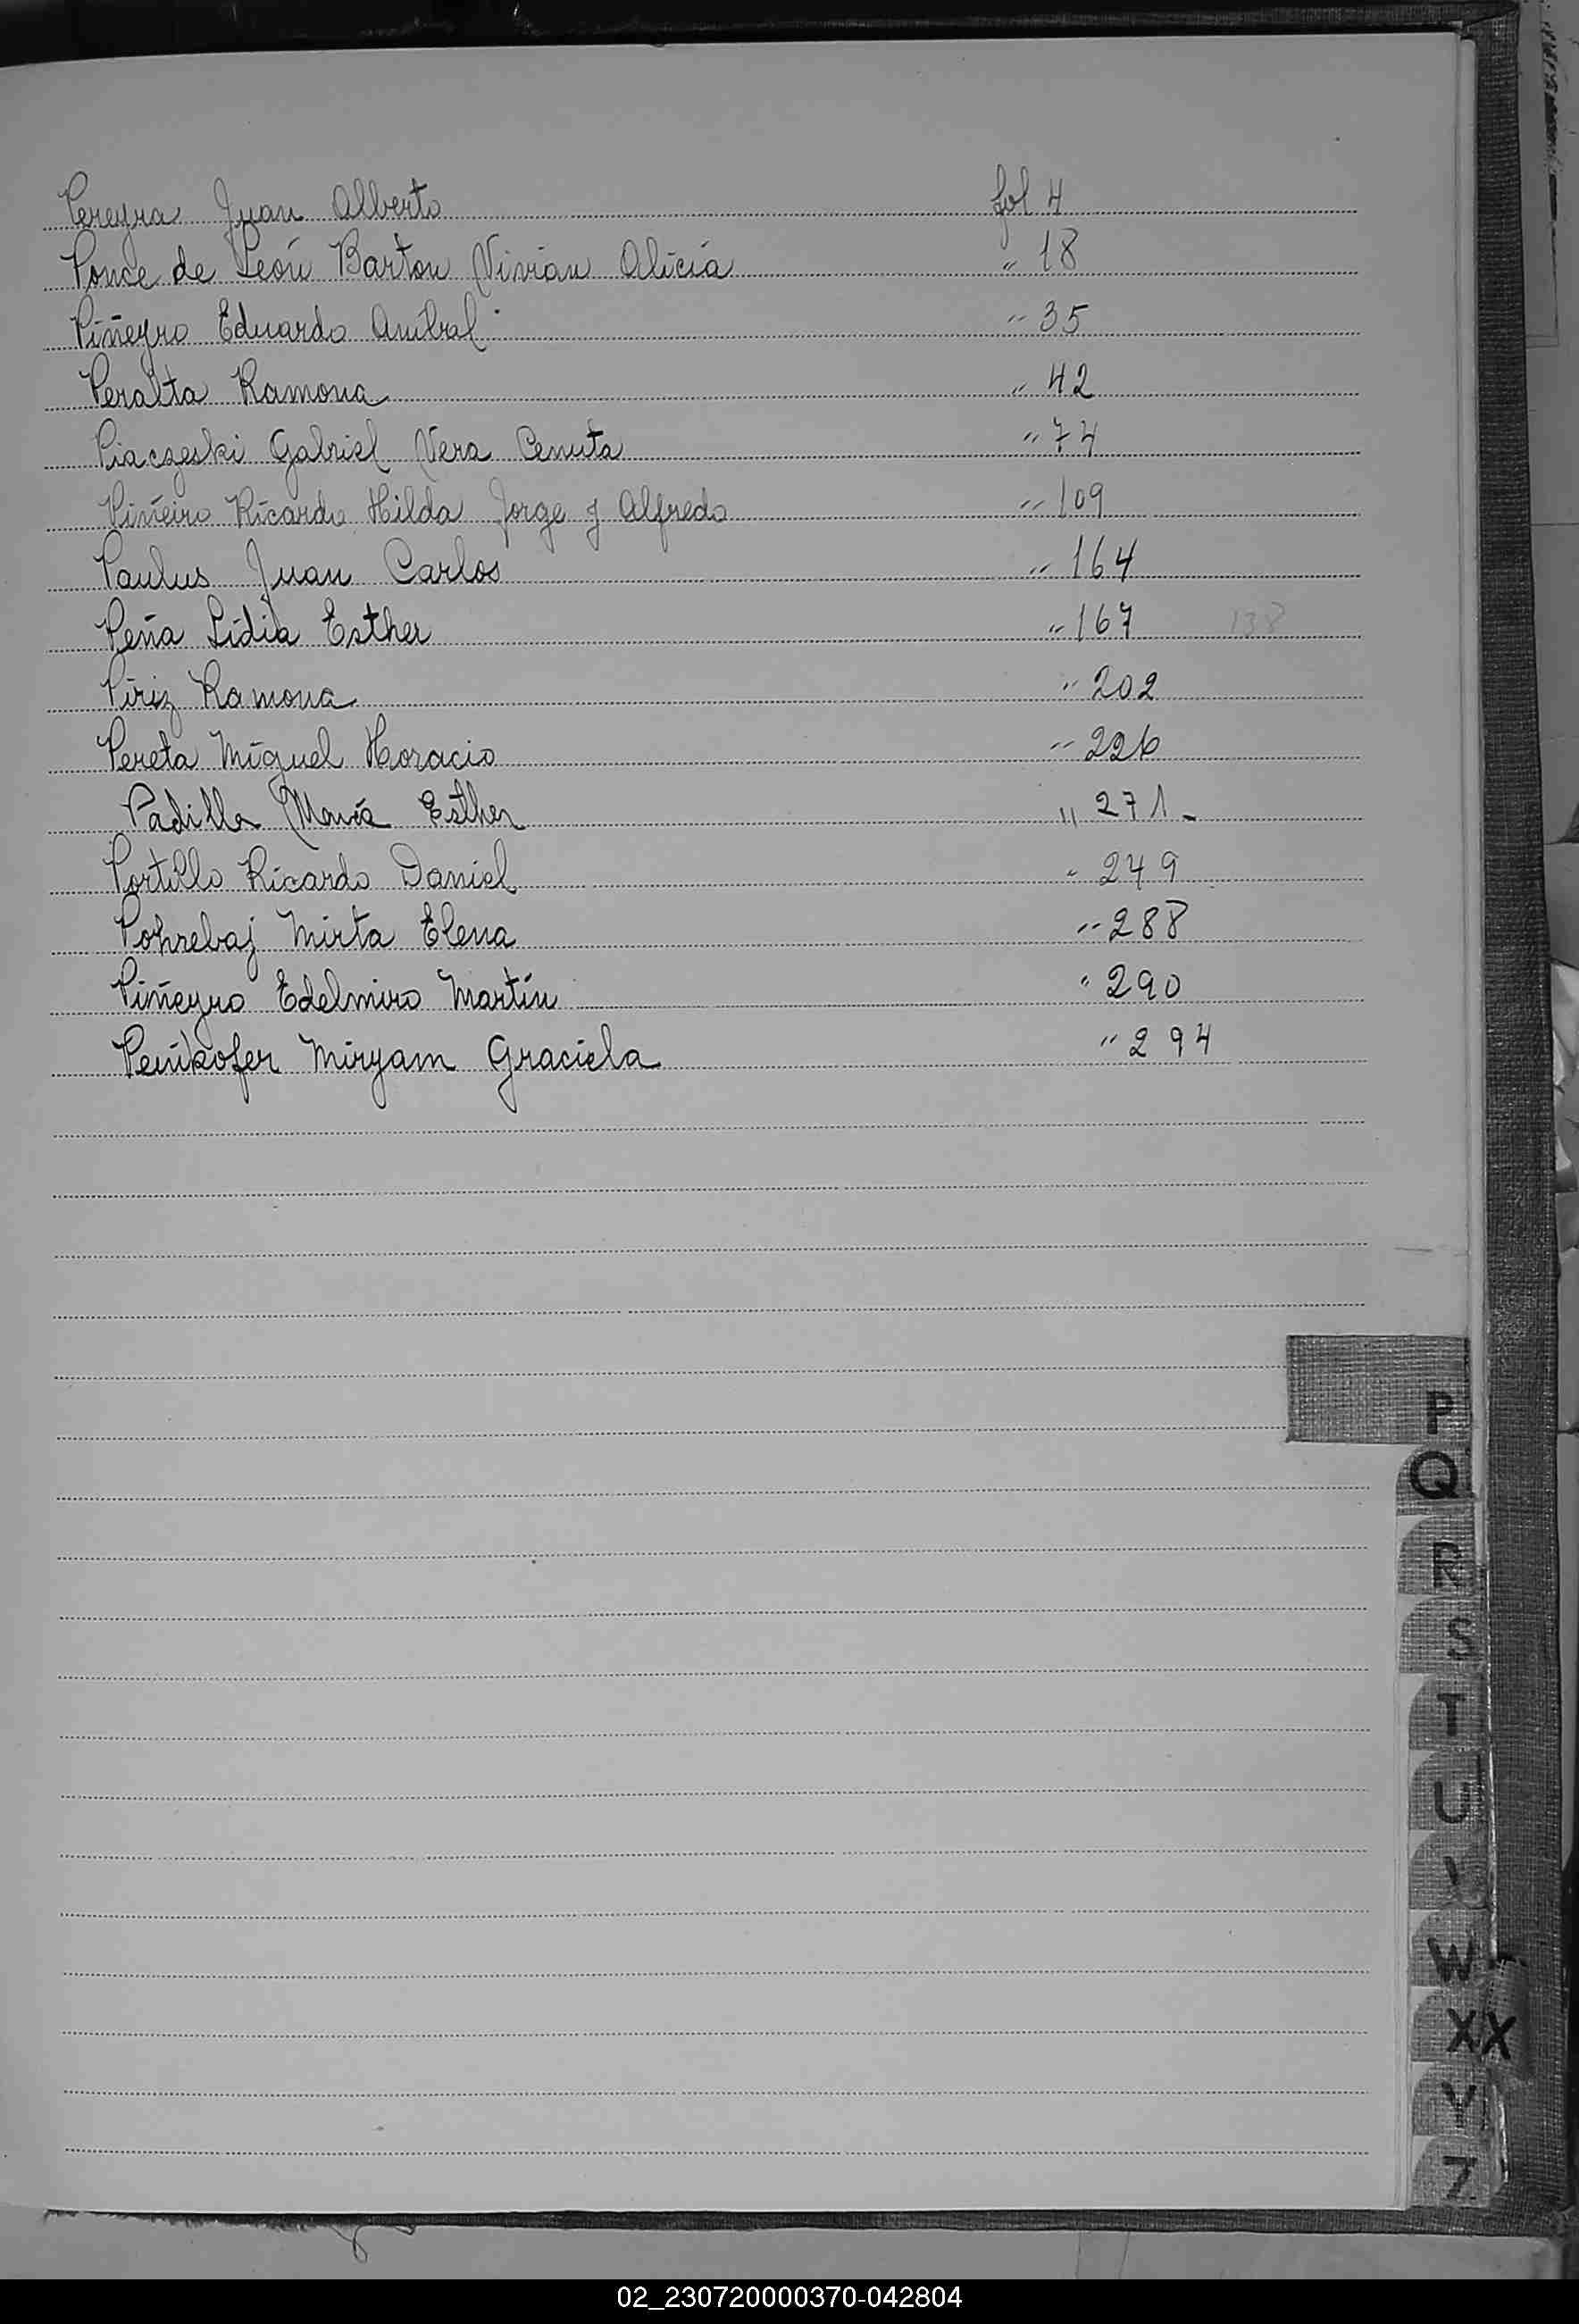 Pereyra Juan Alberto fol 4
Ponce de León Barton Vivian Alicia " 18
Piñeyro Eduardo Aníbal " 35
Peralta Ramona " 42
Piaczeski Gabriel Vera Cenuta " 74
Piñeiro Ricardo Hilda Jorge y Alfredo " 109
Paulus Juan Carlos " 164
Peña Lidia Esther " 167 138
Píriz Ramona " 202
Pereta Miguel Horacio " 226
Padilla María Esther " 271.-
Portillo Ricardo Daniel " 249
Pohrebaj Mirta Elena " 288
Piñeyro Edelmiro Martín " 290
Penikofer Miryam Graciela " 294
P
Q
R
S
T
U
W
X X
Y
Z
02_230720000370-042804